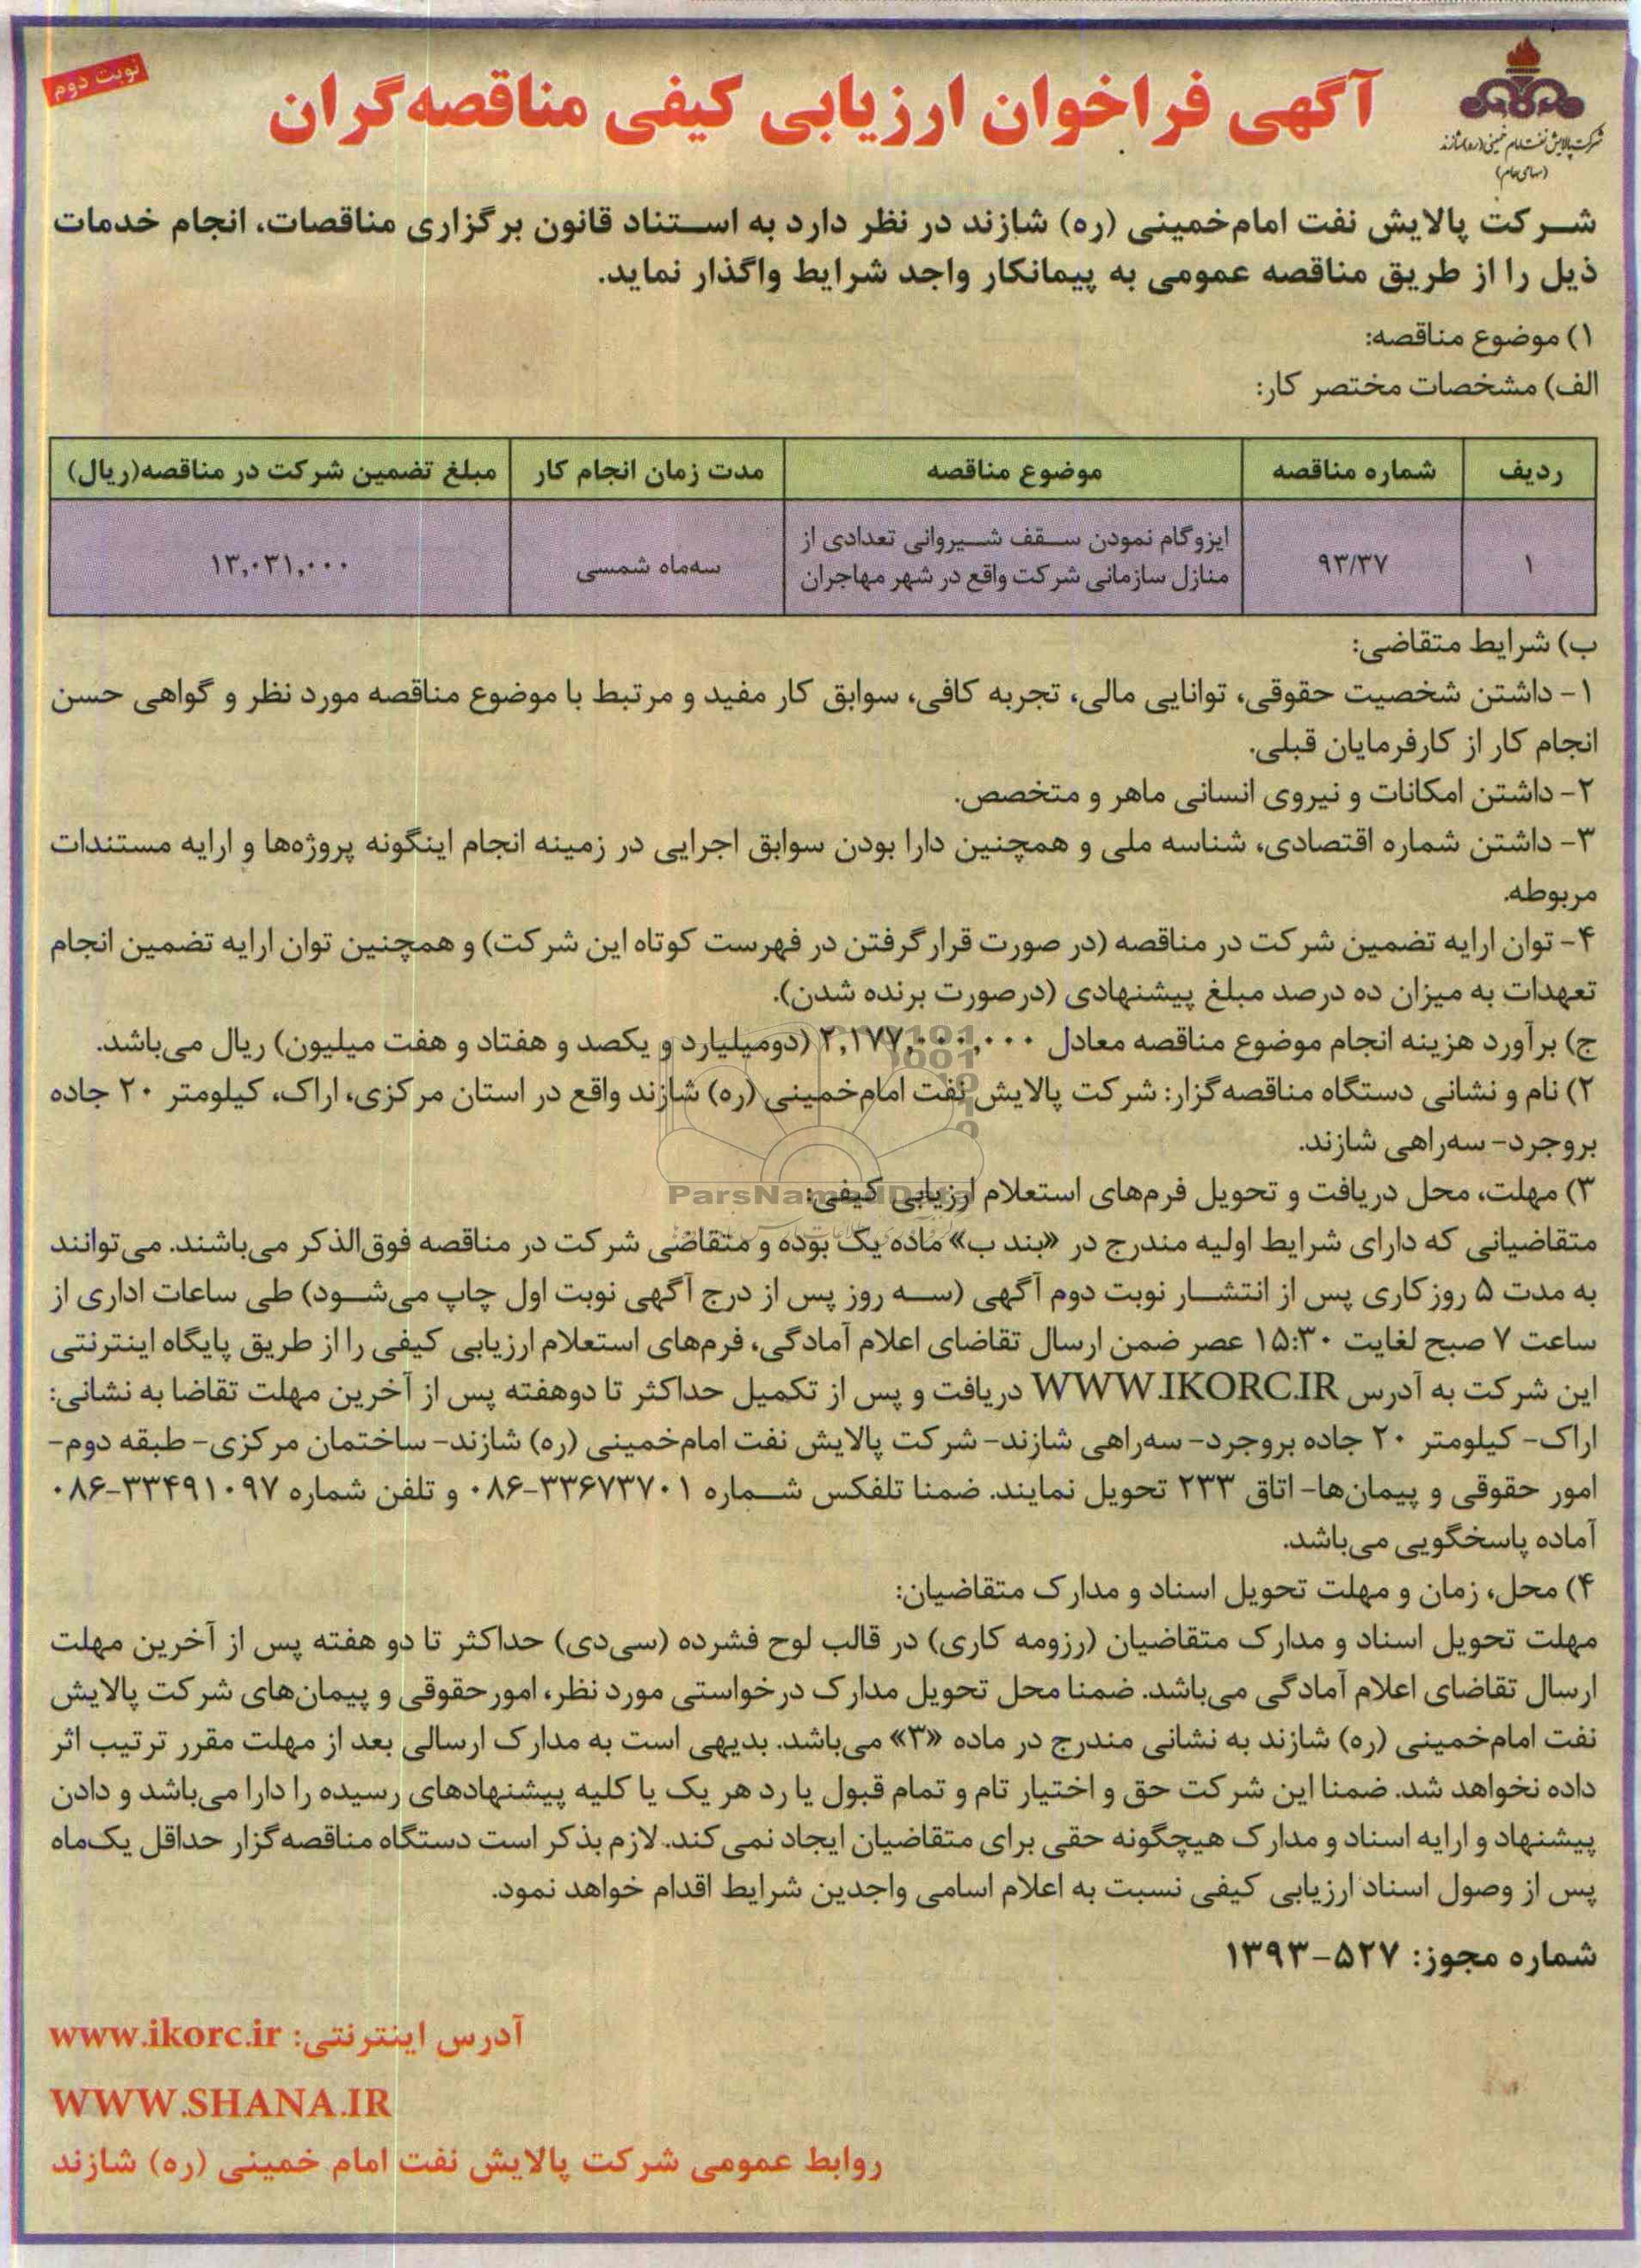 نوبت دوم
آگهی فراخوان ارزیابی کیفی مناقصه‌گران
شرکت پالایش نفت امام خمینی (ره) شازند
(سهامی عام)
شرکت پالایش نفت امام‌خمینی (ره) شازند در نظر دارد به استناد قانون برگزاری مناقصات، انجام خدمات
ذیل را از طریق مناقصه عمومی به پیمانکار واجد شرایط واگذار نماید.
۱) موضوع مناقصه:
الف) مشخصات مختصر کار:
ردیف شماره مناقصه موضوع مناقصه مدت زمان انجام کار مبلغ تضمین شرکت در مناقصه(ریال)
۱ ۹۳/۳۷ ایزوگام نمودن سقف شیروانی تعدادی از
منازل سازمانی شرکت واقع در شهر مهاجران سه‌ماه شمسی ۱۳,۰۳۱,۰۰۰
ب) شرایط متقاضی:
۱- داشتن شخصیت حقوقی، توانایی مالی، تجربه کافی، سوابق کار مفید و مرتبط با موضوع مناقصه مورد نظر و گواهی حسن
انجام کار از کارفرمایان قبلی.
۲- داشتن امکانات و نیروی انسانی ماهر و متخصص.
۳- داشتن شماره اقتصادی، شناسه ملی و همچنین دارا بودن سوابق اجرایی در زمینه انجام اینگونه پروژه‌ها و ارایه مستندات
مربوطه.
۴- توان ارایه تضمین شرکت در مناقصه (در صورت قرار گرفتن در فهرست کوتاه این شرکت) و همچنین توان ارایه تضمین انجام
تعهدات به میزان ده درصد مبلغ پیشنهادی (درصورت برنده شدن).
ج) برآورد هزینه انجام موضوع مناقصه معادل ۲,۱۷۷,۰۰۰,۰۰۰ (دومیلیارد و یکصد و هفتاد و هفت میلیون) ریال می‌باشد.
۲) نام و نشانی دستگاه مناقصه‌گزار: شرکت پالایش نفت امام‌خمینی (ره) شازند واقع در استان مرکزی، اراک، کیلومتر ۲۰ جاده
بروجرد- سه‌راهی شازند.
۳) مهلت، محل دریافت و تحویل فرم‌های استعلام ارزیابی کیفی:
متقاضیانی که دارای شرایط اولیه مندرج در «بند ب» ماده یک بوده و متقاضی شرکت در مناقصه فوق‌الذکر می‌باشند. می‌توانند
به مدت ۵ روز کاری پس از انتشار نوبت دوم آگهی (سه روز پس از درج آگهی نوبت اول چاپ می‌شود) طی ساعات اداری از
ساعت ۷ صبح لغایت ۱۵:۳۰ عصر ضمن ارسال تقاضای اعلام آمادگی، فرم‌های استعلام ارزیابی کیفی را از طریق پایگاه اینترنتی
این شرکت به آدرس WWW.IKORC.IR دریافت و پس از تکمیل حداکثر تا دوهفته پس از آخرین مهلت تقاضا به نشانی:
اراک- کیلومتر ۲۰ جاده بروجرد- سه‌راهی شازند- شرکت پالایش نفت امام‌خمینی (ره) شازند- ساختمان مرکزی- طبقه دوم-
امور حقوقی و پیمان‌ها- اتاق ۲۳۳ تحویل نمایند. ضمنا تلفکس شماره ۳۳۶۷۳۷۰۱-۰۸۶ و تلفن شماره ۳۳۴۹۱۰۹۷-۰۸۶
آماده پاسخگویی می‌باشد.
۴) محل، زمان و مهلت تحویل اسناد و مدارک متقاضیان:
مهلت تحویل اسناد و مدارک متقاضیان (رزومه کاری) در قالب لوح فشرده (سی‌دی) حداکثر تا دو هفته پس از آخرین مهلت
ارسال تقاضای اعلام آمادگی می‌باشد. ضمنا محل تحویل مدارک درخواستی مورد نظر، امور حقوقی و پیمان‌های شرکت پالایش
نفت امام‌خمینی (ره) شازند به نشانی مندرج در ماده «۳» می‌باشد. بدیهی است به مدارک ارسالی بعد از مهلت مقرر ترتیب اثر
داده نخواهد شد. ضمنا این شرکت حق و اختیار تام و تمام قبول یا رد هر یک یا کلیه پیشنهادهای رسیده را دارا می‌باشد و دادن
پیشنهاد و ارایه اسناد و مدارک هیچگونه حقی برای متقاضیان ایجاد نمی‌کند. لازم بذکر است دستگاه مناقصه‌گزار حداقل یک‌ماه
پس از وصول اسناد ارزیابی کیفی نسبت به اعلام اسامی واجدین شرایط اقدام خواهد نمود.
شماره مجوز: ۵۲۷-۱۳۹۳
آدرس اینترنتی: www.ikorc.ir
WWW.SHANA.IR
روابط عمومی شرکت پالایش نفت امام خمینی (ره) شازند